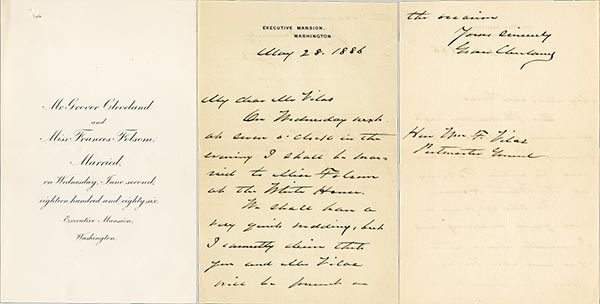 Mr. Grover Cleveland
and
Miss Frances Folsom,
Married,
on Wednesday, June second,
eighteen hundred and eighty six.
Executive Mansion,
Washington.
EXECUTIVE MANSION,
WASHINGTON.
May 28. 1886
My dear Mr Vilas
On Wednesday next
at seven o'clock in the
evening I shall be mar-
ried to Miss Folsom
at the White House.
We shall have a
very quiet wedding, but
I earnestly desire that
you and Mrs Vilas
will be present on
the occasion
Yours sincerely
Grover Cleveland
Hon Wm F. Vilas
Postmaster General